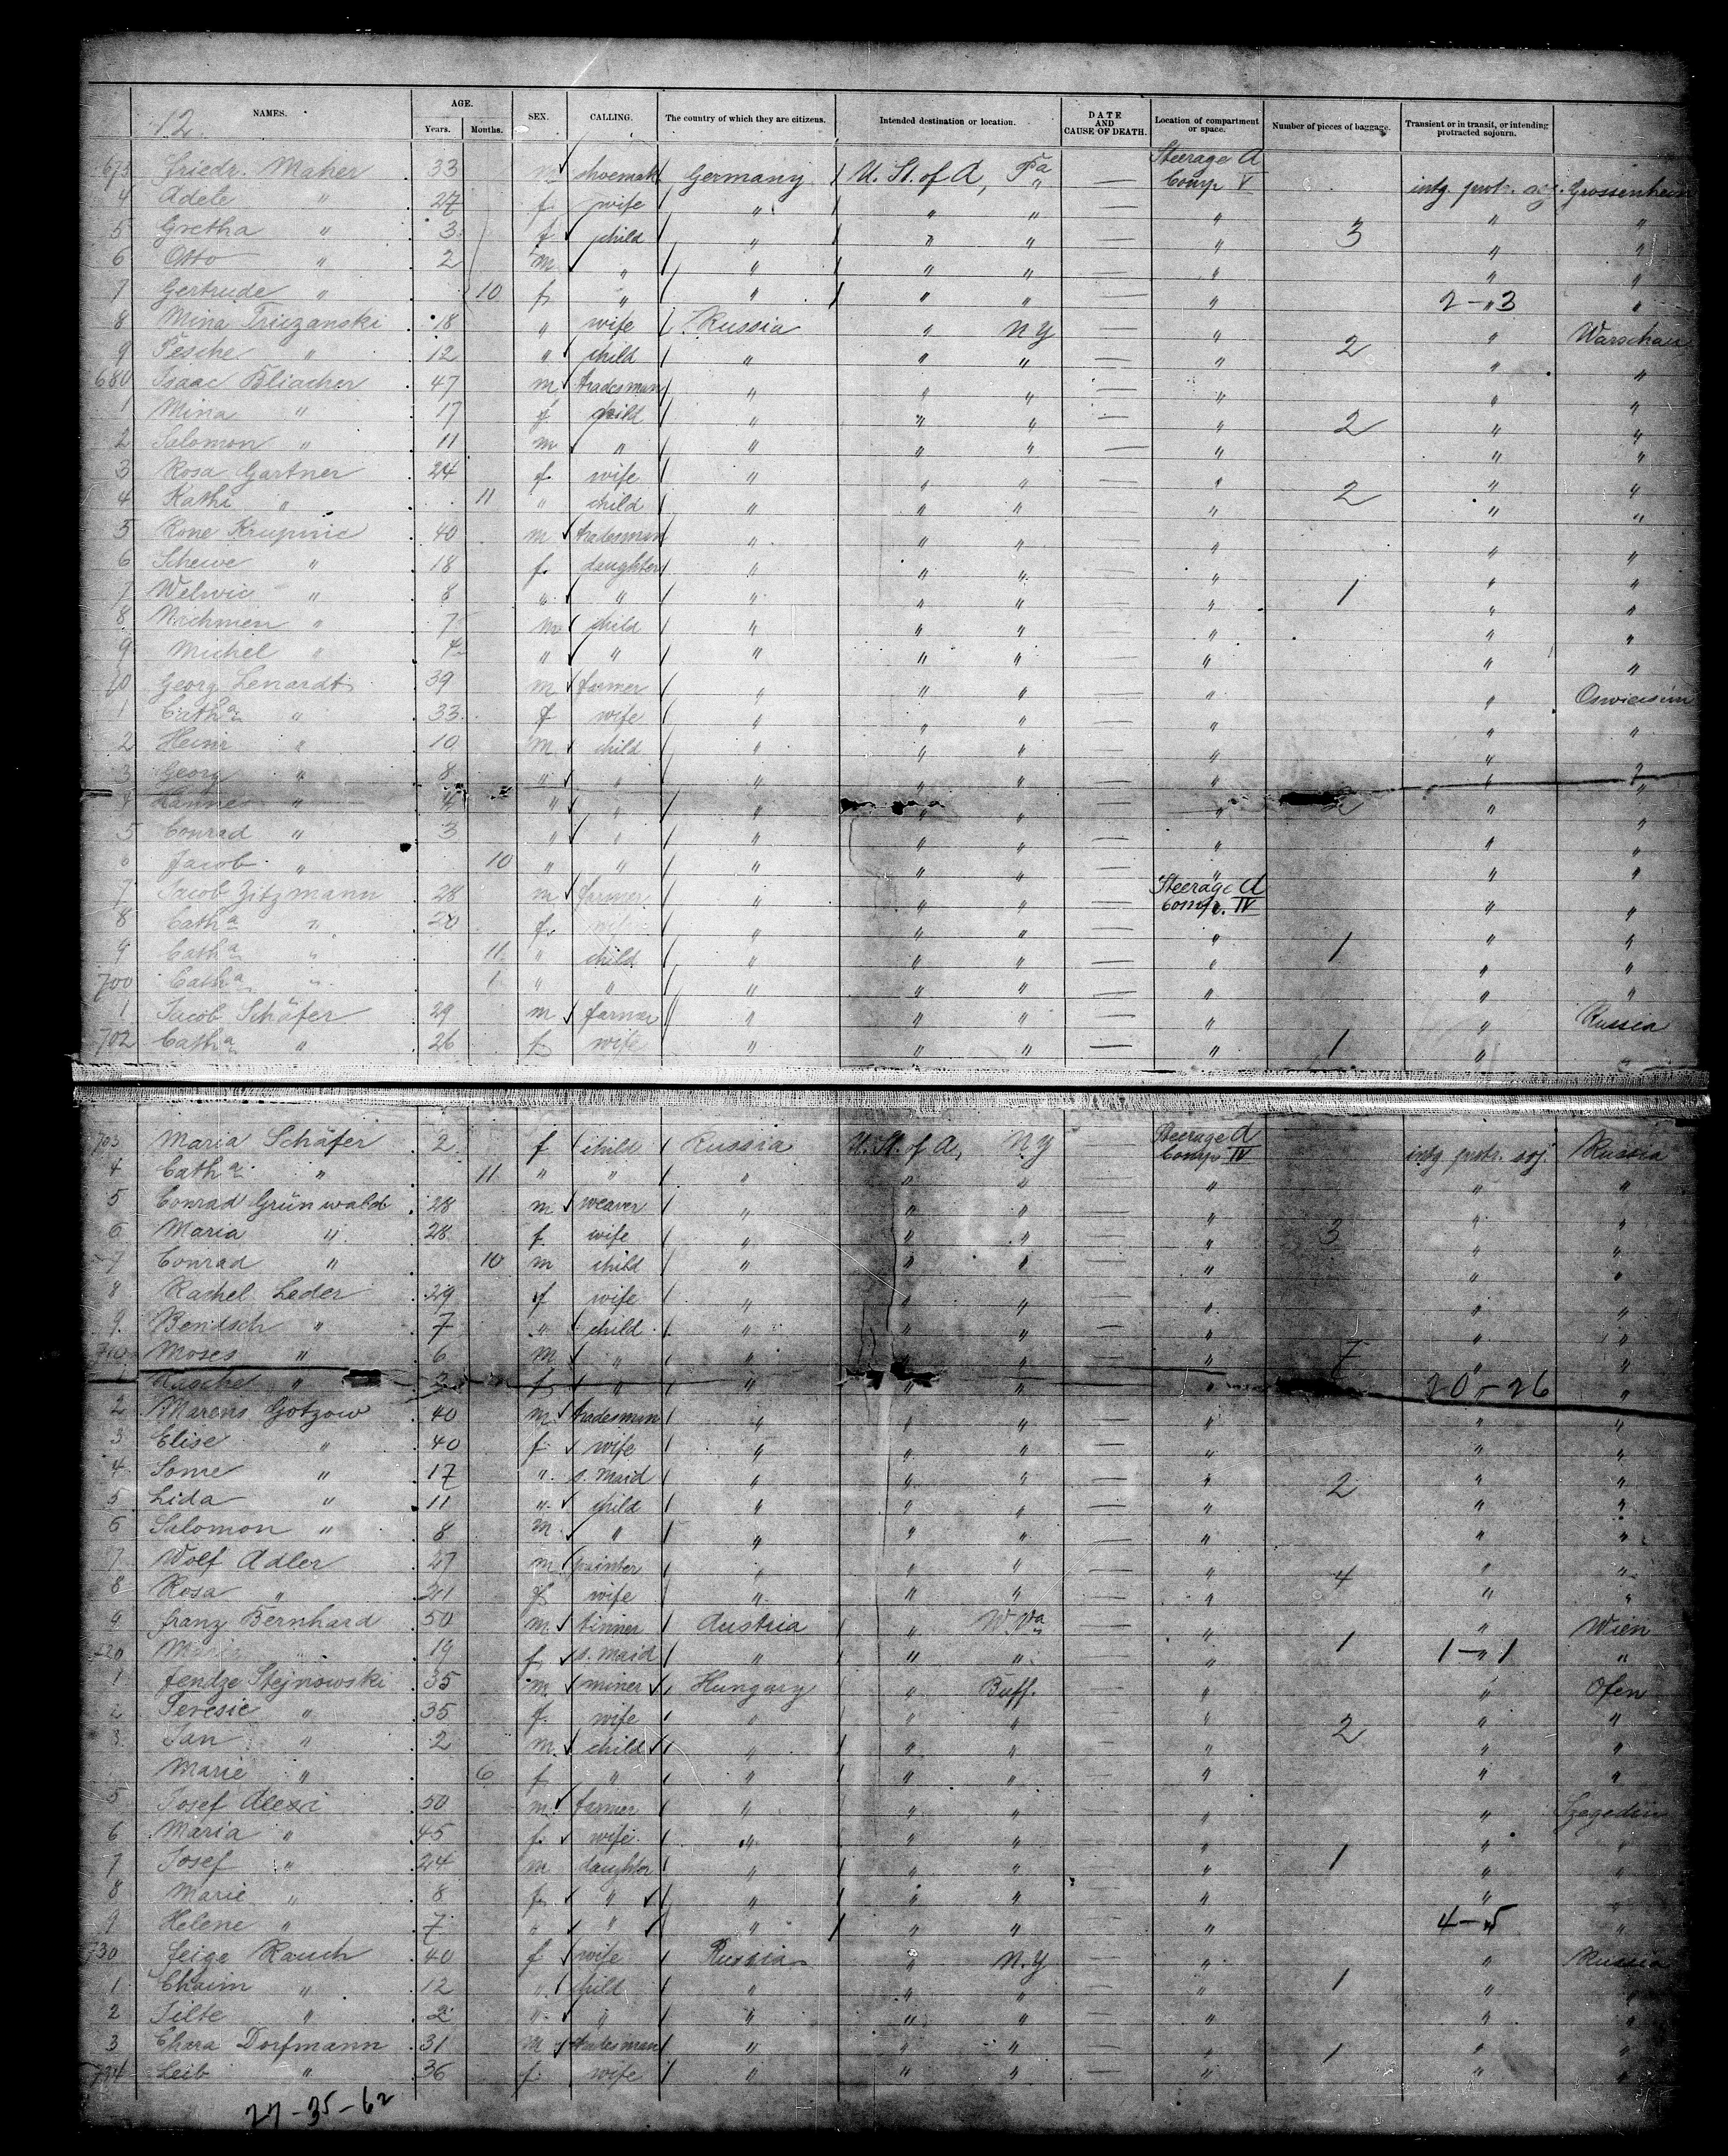 NAMES. AGE. Years. Months. SEX. CALLING. The country of which they are citizens. Intended destination or location. DATE AND CAUSE OF DEATH. Location of compartment or space. Number of pieces of baggage. Transient or in transit, or intending protracted sojourn.
12.
673 Friedr. Maher 33 m shoemak Germany U. St. of A, Pa — Steerage A Comp V intg protr. soj. Grossenhein
4 Adele " 27 f. wife " " " — " " "
5 Gretha " 3 f child " " " — " 3 " "
6 Otto " 2 m " " " " — " " "
7 Gertrude " 10 f " " " " — " 2-3 "
8 Mina 18 " wife Russia " N Y — " " Warschau
9 Pesche " 12 " child " " " — " 2 " "
680 Isaac Bliacher 47 m tradesman " " " — " " "
1 Mina " 17 f child " " " — " 2 " "
2 Salomon " 11 m " " " " — " " "
3 Rosa Gartner 24 f. wife " " " — " " "
4 Kathi " 11 " child " " " — " 2 " "
5 Rone 40 m tradesman " " " — " " "
6 Scheive " 18 f. daughter " " " — " " "
7 " 8 " " " " " — " 1 " "
8 " 7 m child " " " — " " "
9 Michel " 4 " " " " " — " " "
10 Georg Lenardt 39 m farmer " " " — " " Oswiecsim
1 Catha " 33 f wife " " " — " " "
2 Heinr " 10 m child " " " — " " "
3 Georg " 8 " " " " " — " " "
4 " 4 " " " " " — " 2 " "
5 Conrad " 3 " " " " " — " " "
6 Jacob " 10 " " " " " — " " "
7 Jacob Zitzmann 28 m farmer " " " — Steerage A Comp. IV " "
8 Catha " 20 f. wife " " " — " " "
9 Catha " 11 " child " " " — " 1 " "
700 Catha " 1 " " " " " — " " "
1 Jacob Schäfer 29 m farmer " " " — " " Russia
702 Catha " 26 f wife " " " — " 1 " "
703 Maria Schäfer 2 f child Russia U. St. of A, N. Y — Steerage A Comp IV intg protr. soj. Russia
4 Catha " 11 " " " " " — " " "
5 Conrad Grünwald 28 m weaver " " " — " " "
6 Maria " 28 f. wife " " " — " 3 " "
7 Conrad " 10 m child " " " — " " "
8 Rachel Leder 29 f wife " " " — " " "
9. Bendsch " 7 " child " " " — " " "
710 Moses " 6 m " " " " — " 7 " "
1 " 3 f " " " " — " 20-26 "
2 Gotzow 40 m tradesman " " " — " " "
3 Elise " 40 f. wife " " " — " " "
4 Some " 17 " s. maid " " " — " 2 " "
5 Lida " 11 " child " " " — " " "
6 Salomon " 8 m " " " " — " " "
7 Wolf Adler 27 m painter " " " — " " "
8 Rosa " 21 f wife " " " — " 4 " "
9 Franz Bernhard 50 m tinner Austria " W. Va — " " Wien
720 19 f s. maid " " " — " 1 1-1 "
1 Fendze Stejnowski 35 m miner Hungary " Buff. — " " Ofen
2 Teresie " 35 f. wife " " " — " " "
3 Jan " 2 m child " " " — " 2 " "
Marie " 6 f " " " " — " " "
5 Josef Alexi 50 m farmer " " " — " " Szegedin
6 Maria " 45 f. wife " " " — " " "
7 Josef " 24 m daughter " " " — " 1 " "
8 Marie " 8 f " " " " — " " "
9 Helene " 7 " " " " " — " 4-5 "
730 Feige Rauch 40 f wife Russia " N. Y — " " Russia
1 Chaim " 12 " child " " " — " 1 " "
2 Tilte " 2 " " " " " — " " "
3 Chara Dorfmann 31 m tradesman " " " — " 1 " "
734 Leib " 36 f. wife " " " — " " "
27-35-62